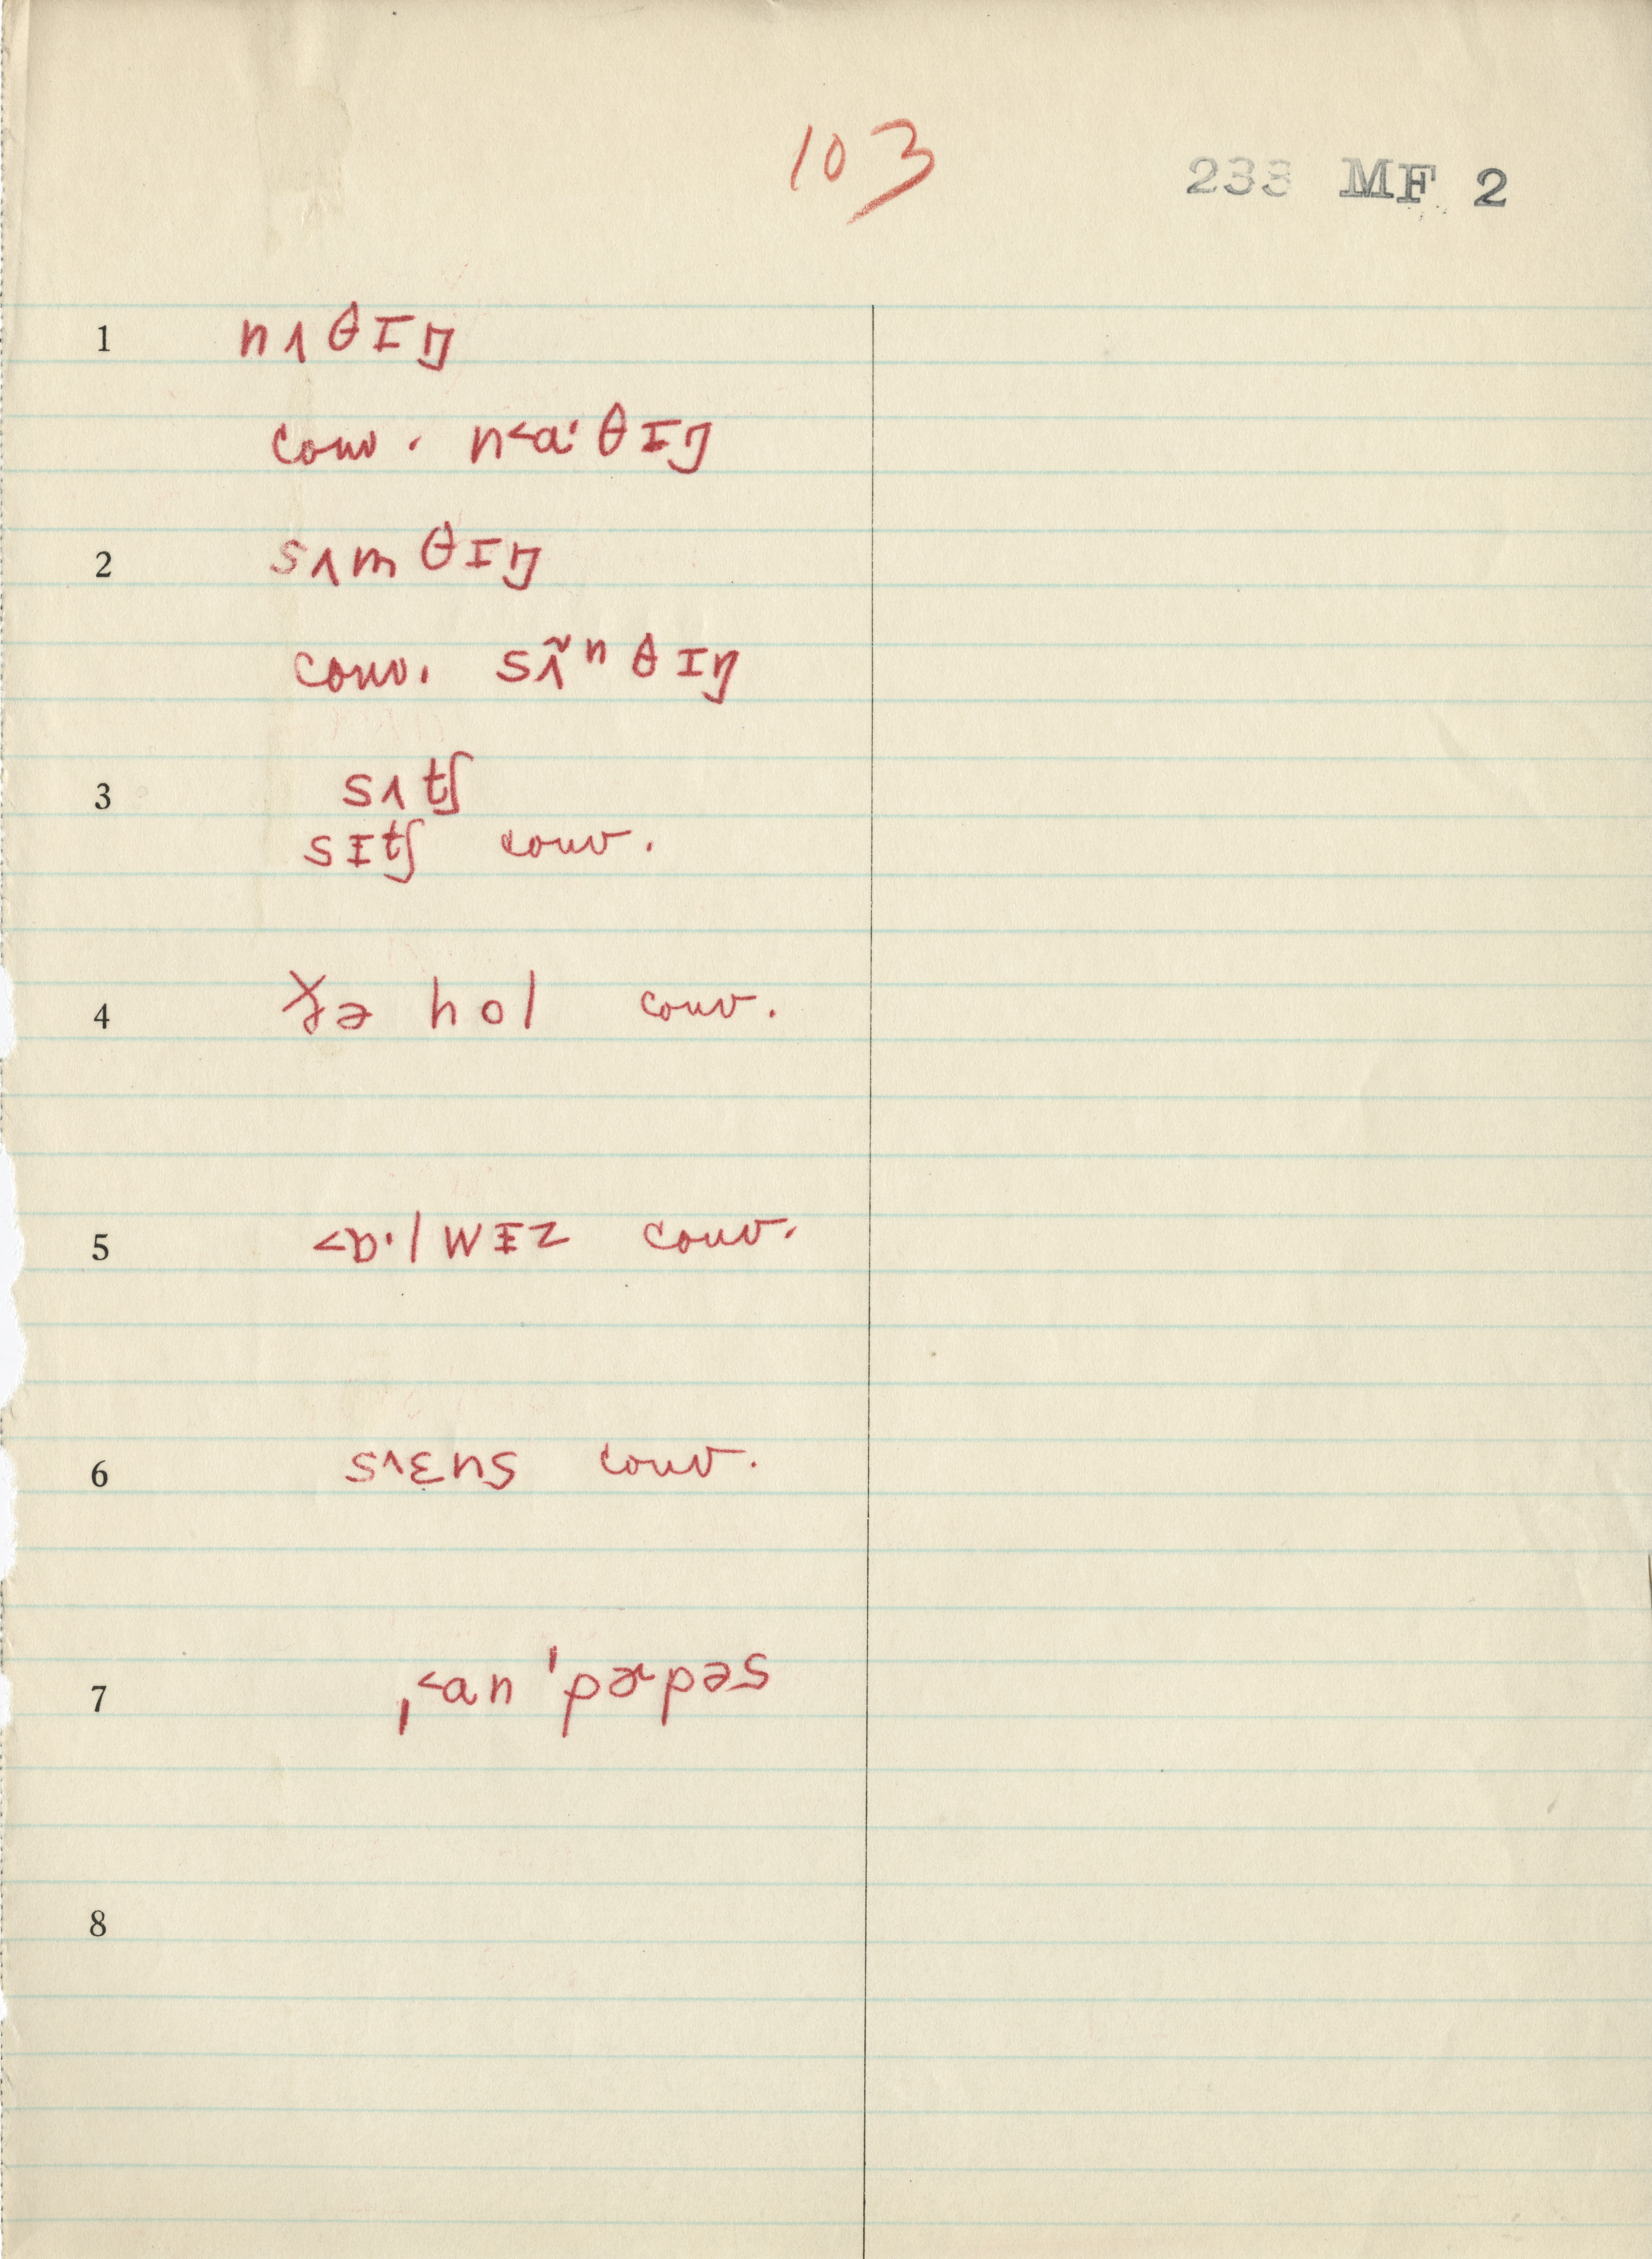 103
233 MF 2
1 nʌθɪŋ
conv. n˂aˑθɪŋ
2 sʌmθɪŋ
conv. sʌ̃ⁿθɪŋ
3 sʌtʃ
sɪtʃ conv.
4 ðə hol conv.
5 ˂ɒˑlwɪz conv.
6 s˄ɛns conv.
7 ˌ˂anˈpɚpəs
8